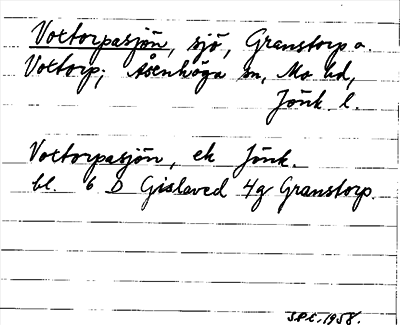 Voxtorpasjön, sjö, Granstorp o.
Voxtorp; Åsenhöga sn, Mo hd,
Jönk. l.
Voxtorpasjön, ek Jönk.
bl. 6 D Gislaved 4g Granstorp.
1958.